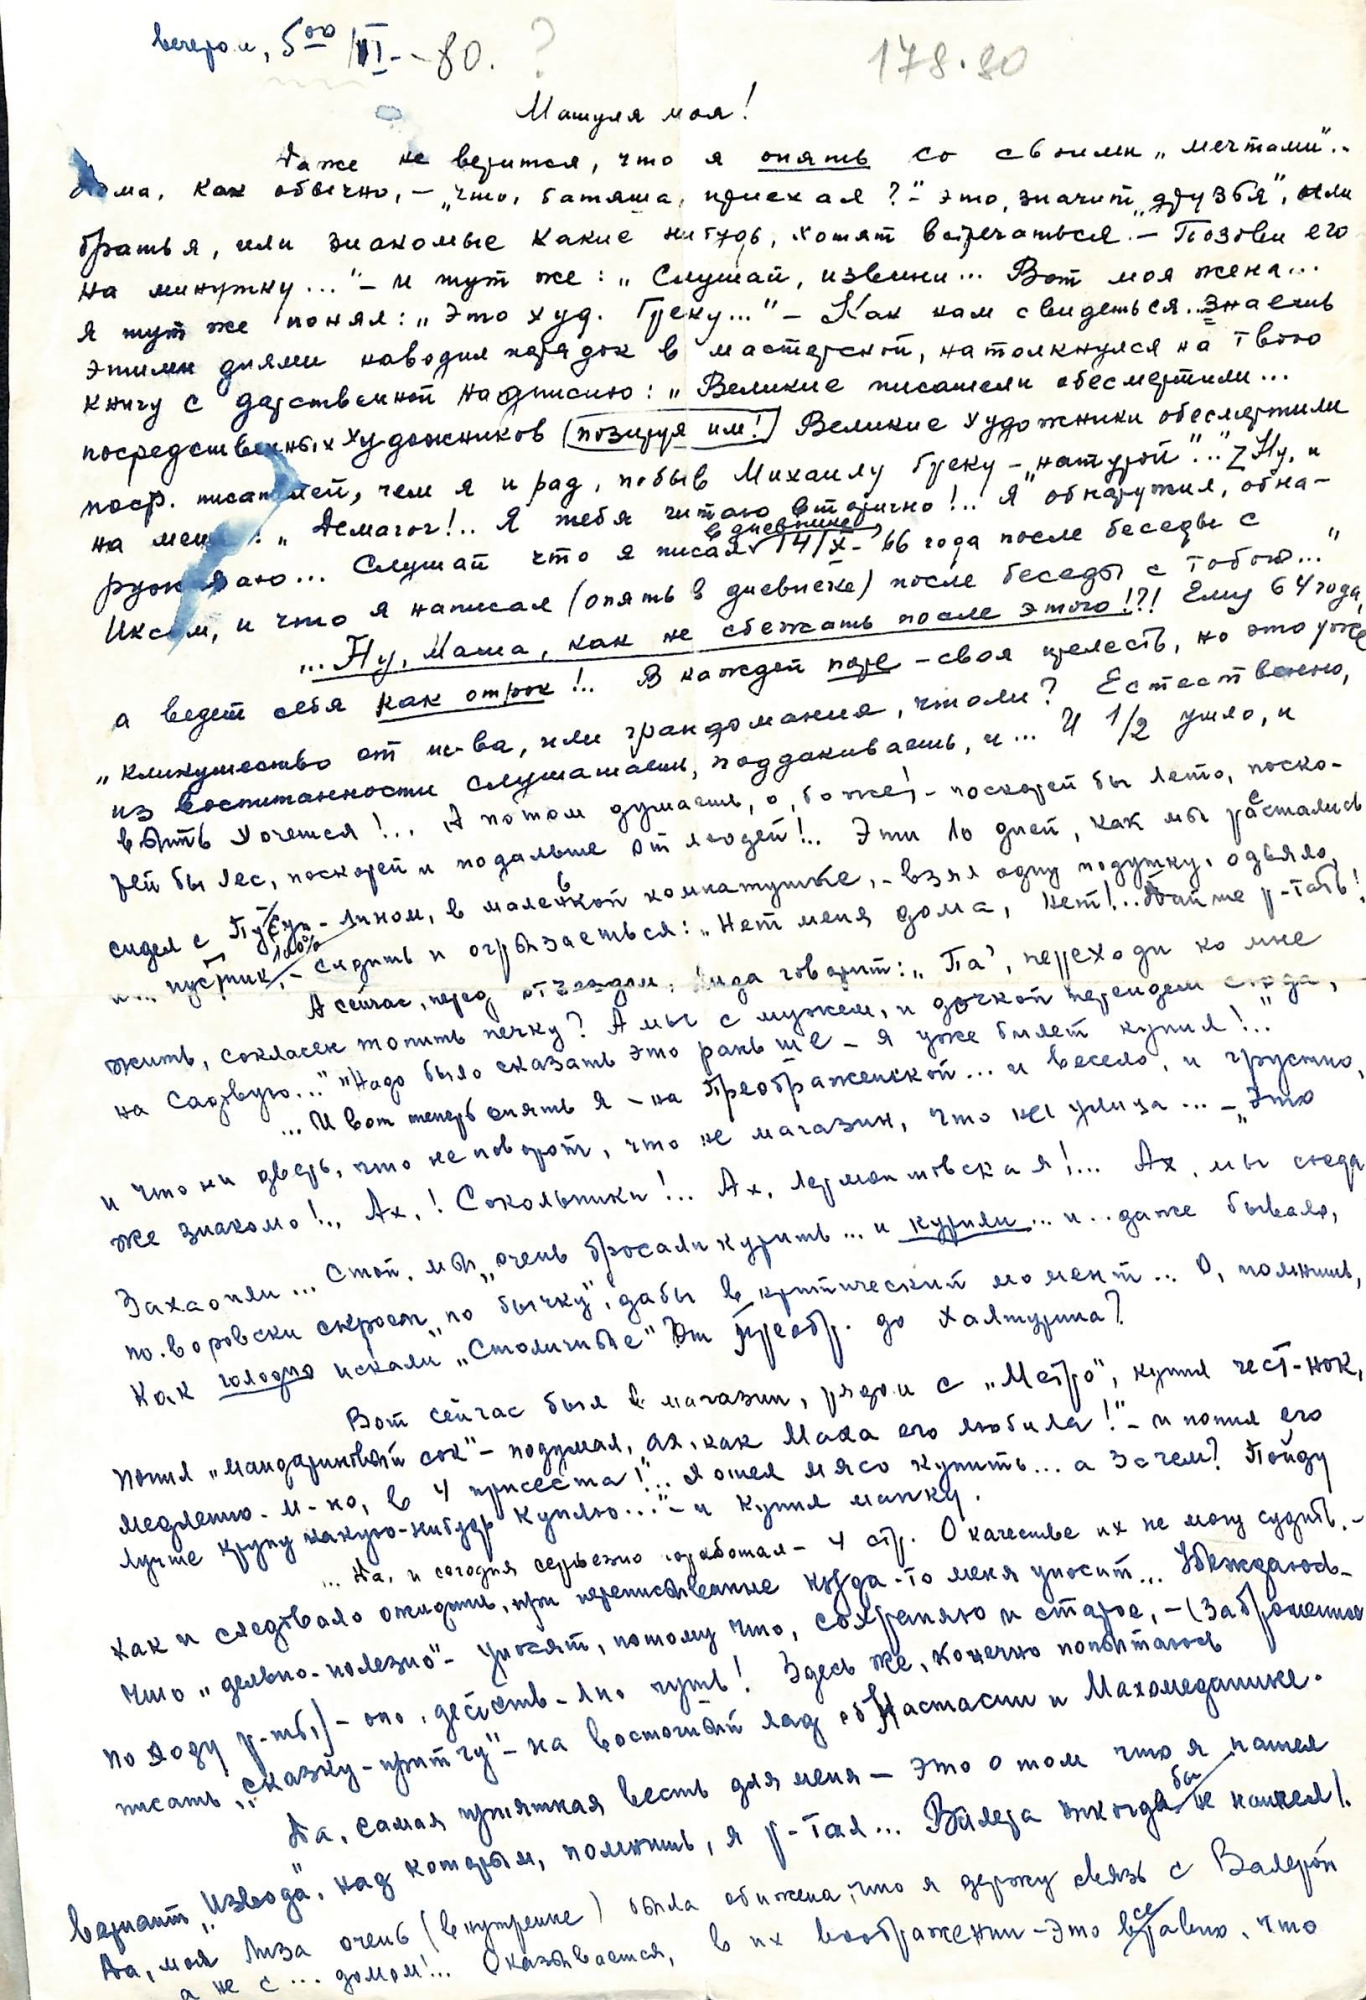 вечером, 5⁰⁰ /VI. - 80. ?
178.80
Машуля моя!
Даже не верится, что я опять со своими „мечтами"..
Дома, как обычно, - „что, батяша, приехал?" - это, значит „друзья", или
братья, или знакомые какие нибудь, хотят встречаться. - Позови его
на минутку..." - и тут же: „Слушай, извини... Вот моя жена...
Я тут же понял: „Это худ. Греку..." - Как нам свидеться.. Знаешь
этими днями наводил порядок в мастерской, натолкнулся на твою
книгу с дарственной надписью: „Великие писатели обесмертили...
посредственных художников (позируя им!) Великие художники обесмертили
поср. писателей, чем я и рад, побыв Михаилу Греку - „натурой"..." Ну, и
на меня: „Демагог!.. Я тебя читаю вторично!.. Я обнаружил, обна-
руживаю... Слушай что я писал в дневнике 14/X - 66 года после беседы с
Иксом, и что я написал (опять в дневнике) после беседы с тобою..."
... Ну, Маша, как не сбежать после этого!?! Ему 64 года,
а ведет себя как отрок!.. В каждой поре - своя прелесть, но это уже
„кликушество от ис-ва, или грандомания, чтоли? Естественно,
из воспитанности слушаешь, поддакиваешь, и... И 1/2 ушло, и
выть хочется!... А потом думаешь, о, боже! - поскорей бы лето, поско-
рей бы лес, поскорей и подальше от людей!.. Эти 10 дней, как мы расстались
сидел с в маленькой комнатушке, - взял одну подушку, одеяло,
и... пустик, 100% - сидить и огрызаеться: „Нет меня дома, нет!.. Дайте р-тать!
А сейчас, перед отъездом, Лида говорит: „Па', переходи ко мне
жить, согласен топить печку? А мы с мужем, и дочкой перейдем сюда,
на Садовую..." „Надо было сказать это раньше - я уже билет купил!.."
... И вот теперь опять я - на Преображенской... и весело, и грустно,
и что ни дверь, что не поворот, что не магазин, что не улица... - „Это
же знакомо!.. Ах,! Сокольники!.. Ах, Лермонтовская!... Ах, мы сюда
Захаопили... Стой, мы „очень бросали курить... и курили... и.. даже бывало,
по-воровски скроем „по бычку", дабы в критический момент... О, помнишь,
как голодно искали „Столичные" От Преобр. до Халтурина?
Вот сейчас был в магазин, рядом с „Метро", купил чест-нок,
попил „мандариновый сок" - подумал, ах, как Маха его любила!" - и попил его
медленно-м-но, в 4 присеста!".. Я шел мясо купить... а зачем? Пойду
лучше крупу какую-нибудь куплю..." - и купил манку.
... Да, и сегодня серьезно поработал - 4 стр. О качестве их не могу судить, -
как и следовало ожидать, при переписывании куда-то меня уносит... Убеждаюсь -
что „дельно-полезно" - уносят, потому что, сохраняю и старое, - (заброшенное
по ходу р-ты,) - оно, действ-льно путь! Здесь же, конечно попытаюсь
писать „сказку-притчу" - на восточный лад об Настасии и Махамеданике.
Да, самая приятная весть для меня - это о том что я нашел
вариант „Извода", над которым, помнишь, я р-тал... Валера никогда бы не нашел!.
Да, моя Лиза очень (внутренне) была обижена, что я держу связь с Валерой
а не с... домом!... Оказывается, в их воображении - это всё равно, что